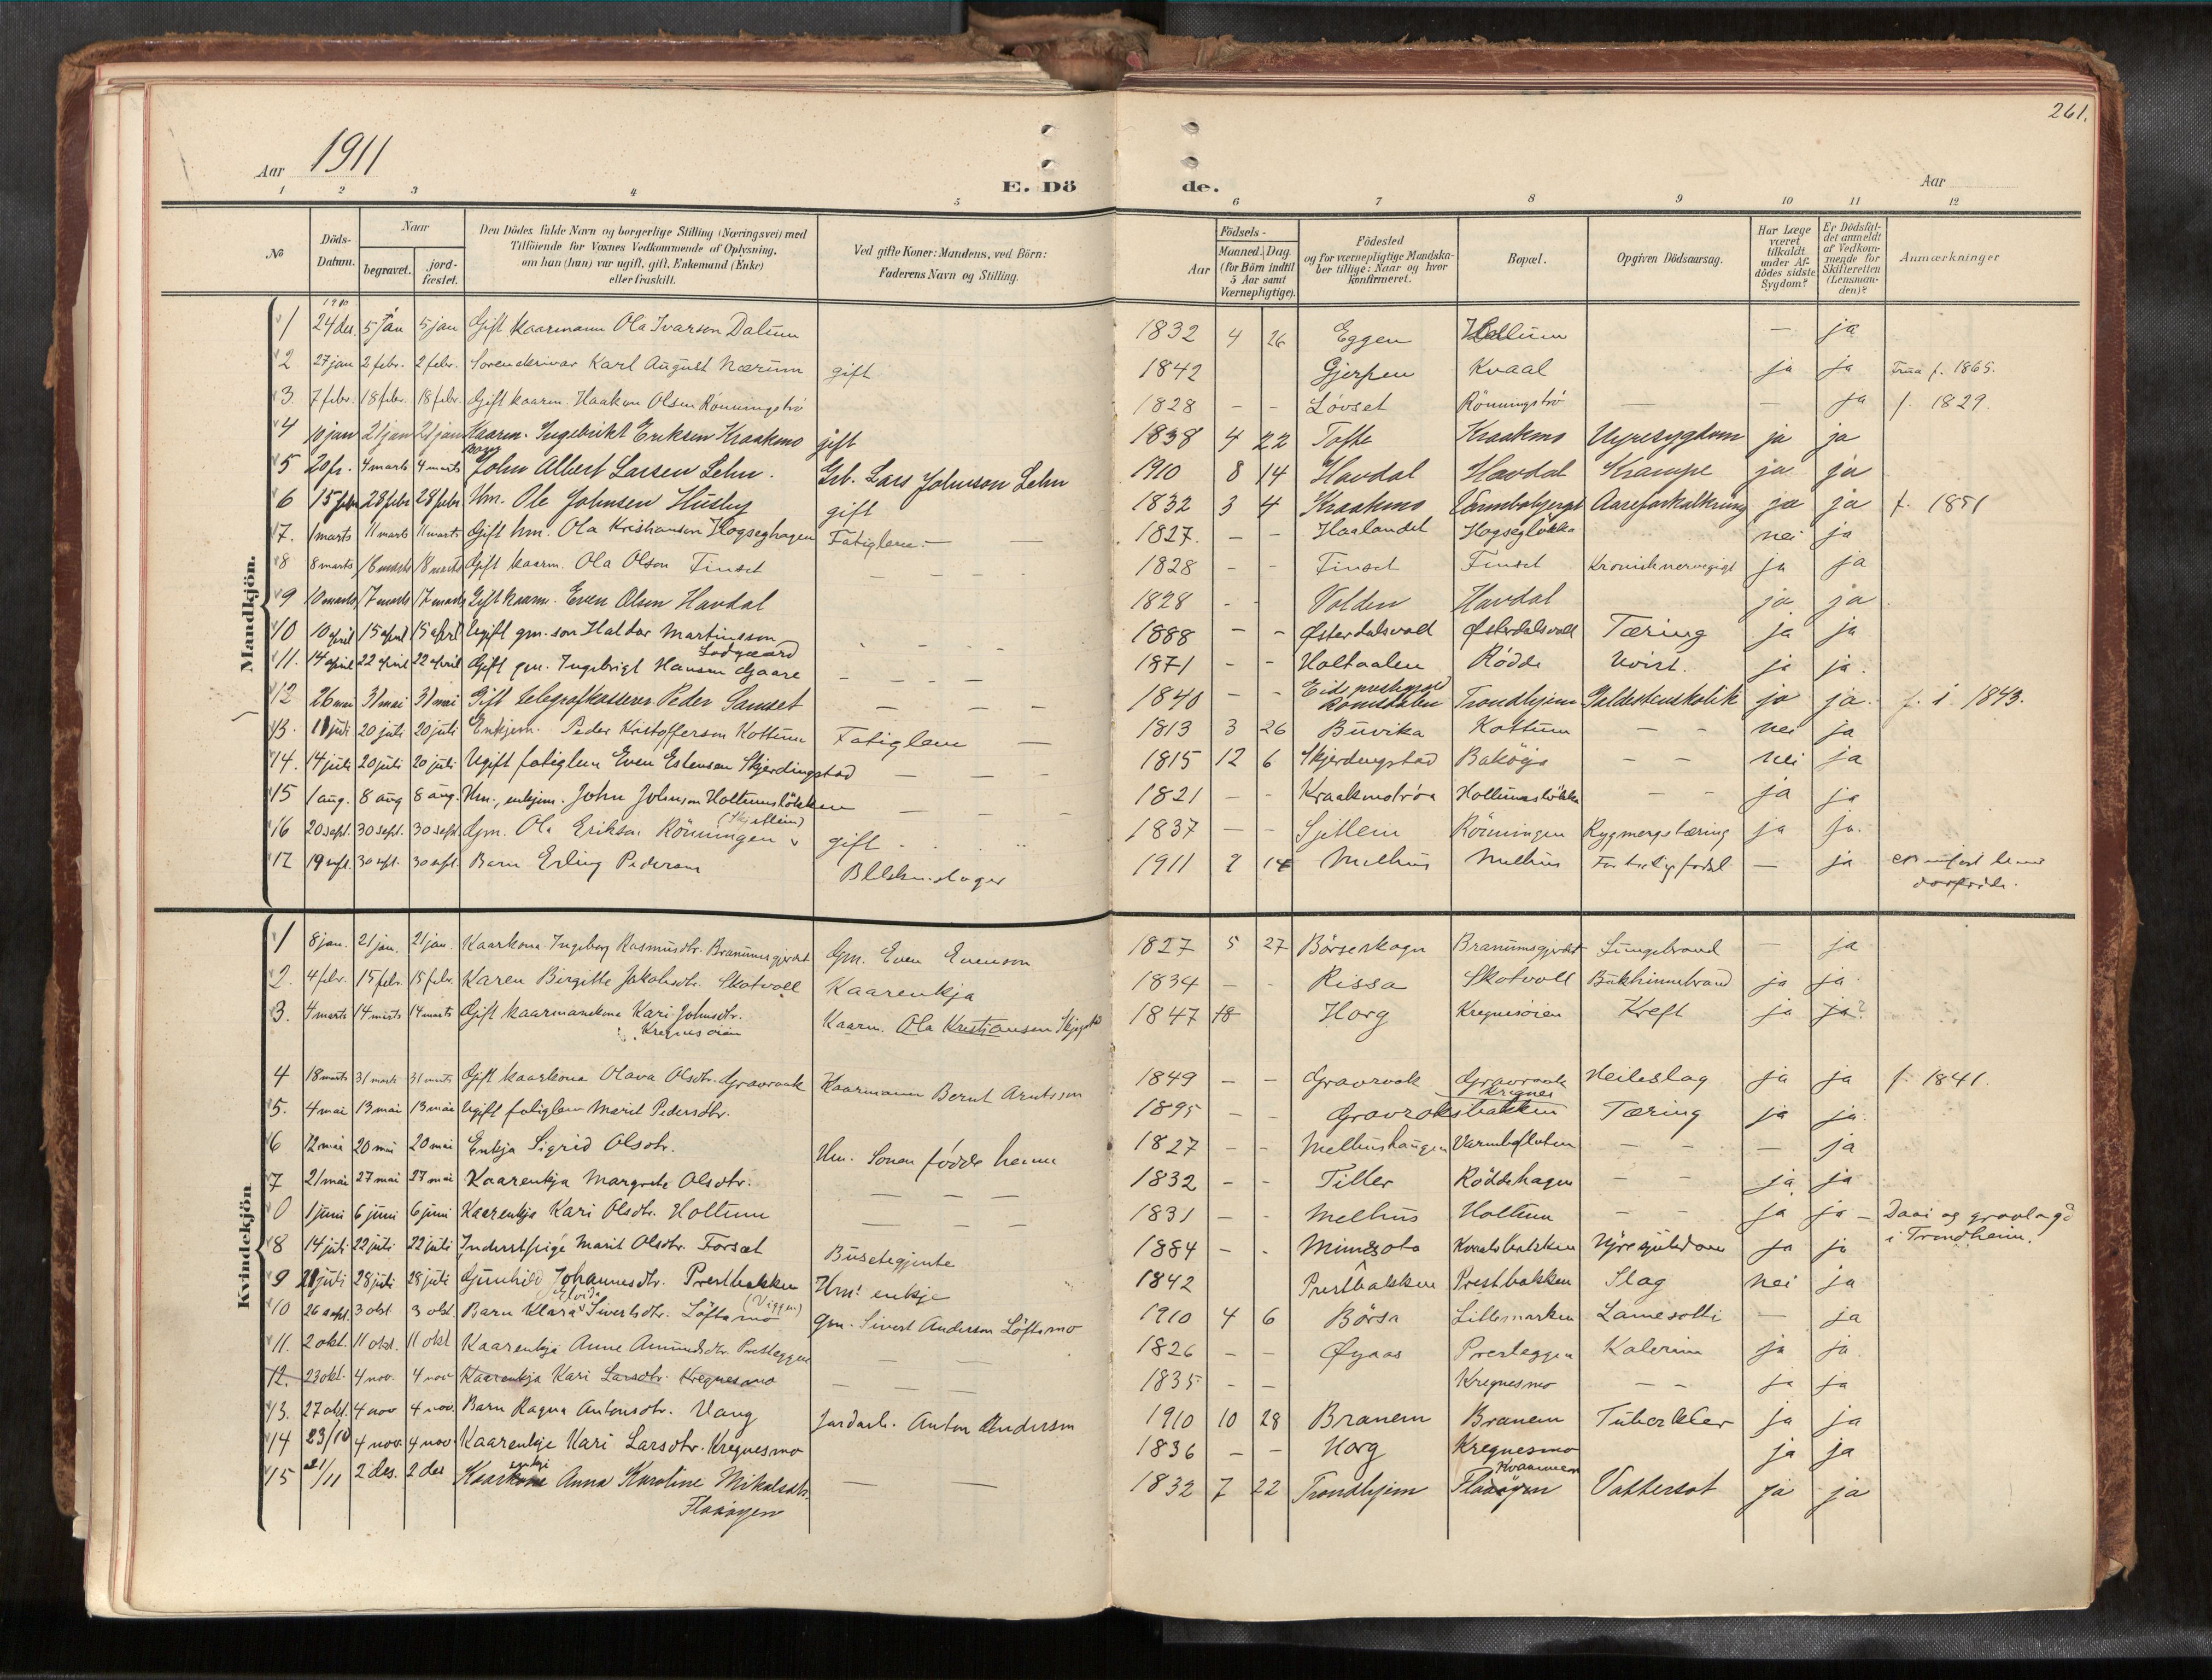 261.
Aar 1911
E. Dö de.
Aar
1 2 3 4 5 6 7 8 9 10 11 12
№ Döds-Datum. Naar begravet. jord-fæstet. Den Dödes fulde Navn og borgerlige Stilling (Næringsvei) med Tilföiende for Voxnes Vedkommende af Oplysning, om han (hun) var ugift, gift, Enkemand (Enke) eller fraskilt. Ved gifte Koner: Mandens, ved Börn: Faderens Navn og Stilling. Födsels- Aar Maaned. Dag. (for Börn indtil 5 Aar samt Værnepligtige). Födested og for værnepligtige Mandskaber tillige: Naar og hvor konfirmeret. Bopæl. Opgiven Dödsaarsag. Har Læge været tilkaldt under Afdödes sidste Sygdom? Er Dödsfaldet anmeldt af Vedkommende for Skifteretten (Lensmanden)? Anmærkninger
Mandkjön.
1910
1 24 des 5 jan 5 jan Gift kaarmann Ola Ivarson Dalum 1832 4 26 Eggen — ja
2 27 jan 2 febr. 2 febr. Sorenskrivar Karl August Nærum gift 1842 Gjerpen Kvaal ja ja Frua f. 1865.
3 7 febr. 18 febr. 18 febr. Gift kaarm. Haakon Olsen Rönningströ 1828 - - Lövset Rönningströ — — ja f. 1829.
4 10 jan 21 jan 21 jan Kaarm. Ingebrikt Eriksen Kraakmo gift 1838 4 22 Tofte Kraakmo Nyresygdom ja ja
5 20 fr. 4 marts 4 marts Barn John Albert Larsen Lehn. Grb. Lars Johnson Lehn 1910 8 14 Havdal Havdal Krampe ja ja
6 15 febr 28 febr 28 febr Hm. Ole Johnsen Husby gift 1832 3 4 Kraakmo Varmbobjerget Aareforkalkning ja ja f. 1851
7. 1 marts 11 marts 11 marts Gift hm. Ola Kristianson Hogseghagen Fatiglem — — 1827. - - Haalandet Hogseglökka nei ja
8 8 marts 18 marts 18 marts Gift kaarm. Ola Olson Finset 1828 - - Finset Finset Kronisk nervegigt ja ja
9 10 marts 17 marts 17 marts Gift kaarm. Even Olson Havdal 1828 - - Volden Havdal ja ja
10 10 april 15 april 15 april Ugift gm. son Haldor Martinsson 1888 - - Østerdalsvoll Østerdalsvoll Tæring ja ja
11. 14 april 22 april 22 april Gift gm. Ingebrigt Hansen Gaare Lodgaard 1871 - - Holtaalen Rödde Uvist. ja ja.
12 26 mai 31 mai 31 mai Gift telegrafkasserer Peder Samset — — — 1840 - - Eid prestegjeld Romsdalen Trondhjem Galdestenskolik ja ja. f. i 1843.
13. 11 juli 20 juli 20 juli Enkjem. Peder Kristofferson Kottum Fatiglem — 1813 3 26 Buvika Kottum - - nei ja
14. 14 juli 20 juli 20 juli Ugift fatiglem Even Estensen Skjerdingstad — — - 1815 12 6 Skjerdingstad Baköyo - - nei ja
15 1 aug. 8 aug 8 aug. Hm., enkjem. John Johnson Holtumslökken — 1821 - - Kraakmotröa Holtumslökka - - ja ja
16 20 sept. 30 sept. 30 sept Gm. Ola Erikson Rönningen (Skjetlein) gift 1837 — - Sjetlein Rönningen Rygmergstæring ja ja.
17 19 sept. 30 sept. 30 sept. Barn Erling Pederson Blikkenslager 1911 9 14 Melhus Melhus For tidlig fødsel — ja
Kvindekjön
1 8 jan. 21 jan. 21 jan. Kaarkona Ingeborg Rasmusdtr. Branumsgjerdet Gm. Even Evenson 1827 5 27 Börseskogn Branumsgjerdet Lungebrand — ja
2. 4 febr. 15 febr. 15 febr. Karen Birgitte Jakobsdtr. Skotvoll Kaarenkja 1834 - - Rissa Skotvoll Bukhinnebrand ja ja.
3. 4 marts 14 marts 14 marts Gift kaarmanskona Kari Johnsdtr. Kregnesöien Kaarm. Ola Kristiansen 1847 18 Horg Kregnesöien Kreft ja ja?
4 18 marts 31 marts 31 marts Gift kaarkona Olava Olsdtr. Gravraak Kaarmann Bernt Arntsson 1849 - - Gravrok Gravraak Heileslag ja ja f. 1841.
5. 4 mai 13 mai 13 mai Ugift fatiglem Marit Pedersdtr. 1895 - - Gravroksbakken Kregnes Tæring ja ja.
6 12 mai 20 mai 20 mai Enkja Sigrid Olsdtr. Hm. Sonen födde henne 1827 — - Melhushaugen Varmbofloten - - — ja
7 21 mai 27 mai 27 mai Kaarenkja Margrete Olsdtr. — — — 1832 - - Tiller Röddehagen - - ja ja
0 1 juni 6 juni 6 juni Kaarenkja Kari Olsdtr. Holtum — — — 1831 - - Melhus Holtum - - ja ja — Daai og gravlagd i Trondheim.
8 14 juli 22 juli 22 juli Inderstpige Marit Olsdtr. Forset Busetegjente 1884 - - Minesota Kvaalsbakken Nyresjukdom ja ja
9 21 juli 28 juli 28 juli Gunhild Johannesdtr. Prestbakken Hm: enkje 1842 Prestbakken Prestbakken Slag nei ja
10 26 sept. 3 okt. 3 okt Barn Klara Elvida Sivertsdtr. Löftamo (Viggen) Gm. Sivert Anderson Löftamo 1910 4 6 Börsa Litlemarken Lamesotti — ja
11. 2 okt. 11 okt. 11 okt Kaarenkja Anne Amundsdtr. Presteggen — — 1826 - - Øyaas Presteggen Kolerin ja ja.
12. 23 okt. 4 nov. 4 nov Kaarenkja Kari Larsdtr. Kregnesmo — — — 1835 - - Kregnesmo - - ja ja
13. 27 okt. 4 nov 4 nov. Barn Ragna Antonsdtr. Vang Jordarb. Anton Anderson 1910 10 28 Branem Branem Tuberkler ja ja
14 23/10 4 nov. 4 nov. Kaarenkje Kari Larsdtr. Kregnesmo 1836 - - Horg Kregnesmo ja ja
15 21/11 2 des. 2 des Kaarkone enkje Anna Karoline Mikalsdtr. Flaaöyen — — 1832 7 22 Trondhjem Flaaöyen Kvammen Vattersot ja ja